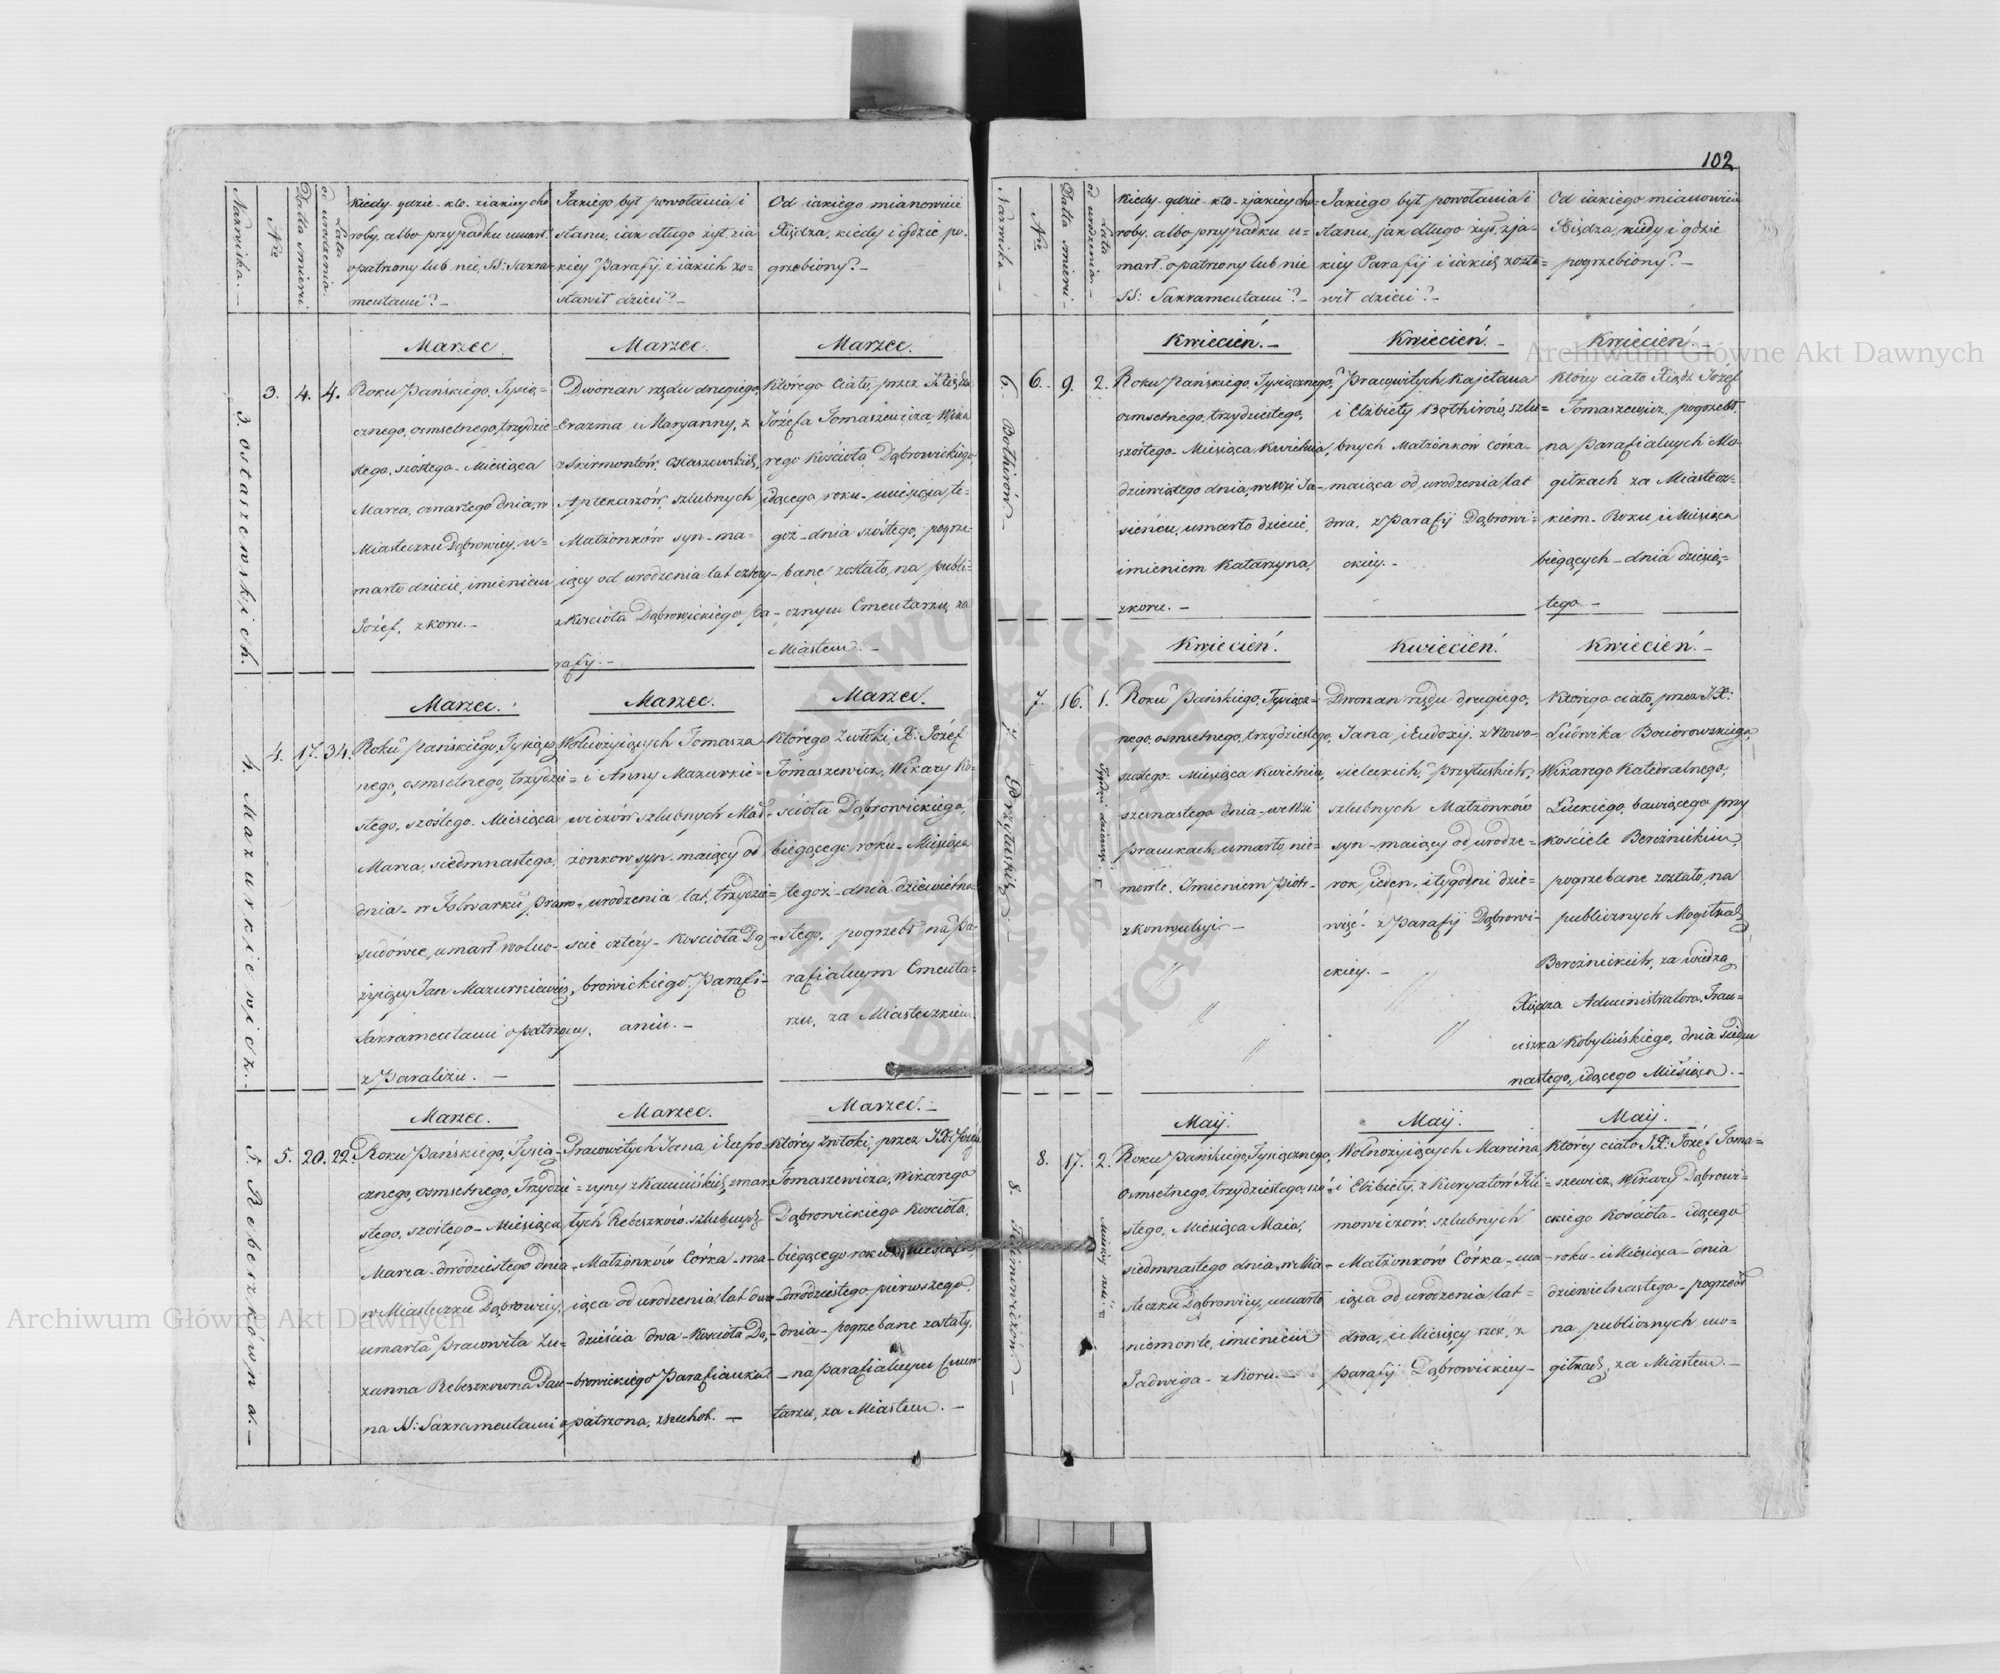 102
Nazwiska. —
Nro
Datta śmierci
Lata od urodzenia.
Kiedy gdzie kto z iakiey cho=
roby, albo przypadku umarł
opatrzony lub nie, SS: Sakra=
mentami? —
Jakiego był powołania i
stanu, iak długo żył, z ia=
kiey Parafij i iakich zo=
stawił dzieci? —
Od iakiego mianowicie
Xiędza, kiedy i gdzie po=
grzebiony? —
3. Ostaszewskich.
3.
4.
4.
Marzec.
Roku Pańskiego, Tysią=
cznego, osmsetnego, trzydzie=
stego, szóstego — Miesiąca
Marca, czwartego dnia, w
Miasteczku Dąbrowicy, u=
marło dziecie, imieniem
Józef, z koru. —
Marzec.
Dworzan rzędu drugiego,
Erazma i Maryanny, z
z Skirmontów, Ostaszewskich,
Aptekarzów, szlubnych
Małżonków syn — ma=
iący od urodzenia lat cztery
z Kościoła Dąbrowickiego Pa=
rafij. —
Marzec.
Którego Ciało, przez Xiędza
Józefa Tomaszewicza, Wika
rego Kościoła Dąbrowickiego,
idącego roku — miesiąca, te=
goż — dnia szóstego, pogrze=
bane zostało, na publi=
cznym Cmentarzu, za
Miastem. —
4. Mazurkiewicz. —
4.
17.
34.
Marzec.
Roku Pańskiego, Tysiącz
nego, osmsetnego, trzydzie=
stego, szóstego — Miesiąca
Marca, siedmnastego,
dnia — w Folwarku, Prawo=
sudówie, umarł wolno=
żyiący Jan Mazurkiewicz,
Sakramentami opatrzony,
z Paraliżu. —
Marzec.
Wolnożyiących Tomasza
i Anny Mazurkie=
wiczów szlubnych Mał=
żonków syn — maiący od
urodzenia lat, trzydzie=
ście cztery — Kościoła Dą=
browickiego Parafi=
anin. —
Marzec.
Którego Zwłoki, X: Józef
Tomaszewicz, Wikary Ko=
ścioła Dąbrowickiego,
biegącego roku — Miesiąca
tegoż — dnia dziewietna=
stego, pogrzebł na Pa=
rafialnym Cmenta=
rzu, za Miasteczkiem.
5. Rebeszkówna. —
5.
20.
22.
Marzec.
Roku Pańskiego, Tysią=
cznego, osmsetnego, Trzydzie=
stego, szóstego — Miesiąca,
Marca — dwódziestego dnia
w Miasteczku Dąbrowicy,
umarła Pracowita Zu=
zanna Rebeszkowna Pan=
na SS: Sakramentami o
Marzec.
Pracowitych Jana, i Eufro=
zyny z Kamińskich, zmar=
łych Rebeszków szlubnych
Małżonków Córka — ma=
iąca od urodzenia, lat dwa=
dzieścia dwa — Kościoła Dą=
browickiego Parafianka
patrzona, z suchot. —
Marzec. —
którey zwłoki, przez JX: Józefa
Tomaszewicza, Wikarego
Dąbrowickiego Kościoła,
biegącego roku i miesiąca,
dwódziestego pierwszego,
dnia — pogrzebane zostały,
na Parafialnym Cmen=
tarzu, za Miastem. —
Nazwiska —
Nro
Datta śmierci —
Lata od urodzenia —
Kiedy gdzie kto z iakiey cho=
roby, albo przypadku u=
marł, opatrzony lub nie
SS: Sakramentami? —
Jakiego był powołania i
stanu, jak długo żył, z ja=
kiey Parafij i iakich zosta=
wił dzieci? —
Od iakiego mianowicie
Xiędza, kiedy i gdzie
pogrzebiony? —
6. Bothirów —
6.
9.
2.
Kwiecień. —
Roku Pańskiego, Tysiącznego,
osmsetnego, trzydziestego,
szóstego — Miesiąca Kwietnia,
dziewiątego dnia, we Wsi Ja=
sieńcu, umarło dziecie,
imieniem Katarzyna,
z koru. —
Kwiecień. —
Pracowitych Kajetana
i Elżbiety Bothirów, szlu=
bnych Małżonków córka —
maiąca od urodzenia lat
dwa, z Parafij Dąbrowi=
ckiey. —
Kwiecień. —
Którey ciało Xiądz Józef
Tomaszewicz, pogrzebł,
na Parafialnych Mo=
giłkach za Miastecz=
kiem — Roku, i Miesiąca
biegących — dnia dziesią=
tego —
7. Przyłuskich —
7.
16.
1.
Tygodni dziewięć
Kwiecień.
Roku Pańskiego, Tysiącz=
nego, osmsetnego, trzydziestego,
szóstego — Miesiąca Kwietnia,
szesnastego dnia — we Wsi
Prawkach, umarło, nie=
mowle, Imieniem Piotr —
z konwulsyi —
Kwiecień.
Dworzan rzędu drugiego,
Jana i Eudoxij, z Nowo=
sieleckich, Przyłuskich,
szlubnych Małżonków
syn — maiący od urodze=
rok jeden, i tygodni dzie=
więć — z Parafij Dąbrowi=
ckiey. —
Kwiecień. —
Którego ciało, przez JX:
Ludwika Bociorowskiego,
Wikarego Katedralnego,
Łuckiego, bawiącego przy
kościele Bereźnickim,
pogrzebane zostało, na
publicznych Mogiłkach
Bereźnickich, za wiedzą
Xiędza Administratora, Fran=
ciszka Kobylińskiego, dnia siedm
nastego, idącego Miesiąca. —
8. Filimowiczów —
8.
17.
2.
Miesięcy sześć
Maij.
Roku Pańskiego, Tysiącznego,
osmsetnego, trzydziestego, szó=
stego, Miesiąca Maia,
siedmnastego dnia, w Mia=
steczku Dąbrowicy, umarło
niemowle, imieniem
Jadwiga — z koru. —
Maij.
Wolnożyiących Marcina,
i Elżbiety, z Kuryatów Fili=
mowiczów, szlubnych
Małżonków Córka — ma=
iąca od urodzenia, lat —
dwa, i Miesięcy sześć, z
Parafij Dąbrowickiey —
Maij.
Którey ciało JX: Józef Toma=
szewicz, Wikary Dąbrowi=
ckiego Kościoła — idącego
roku — i Miesiąca — dnia
dziewietnastego — pogrzebł
na publicznych mo=
giłkach, za Miastem —
Archiwum Główne Akt Dawnych
Archiwum Główne Akt Dawnych
ARCHIWUM GŁÓWNE AKT DAWNYCH